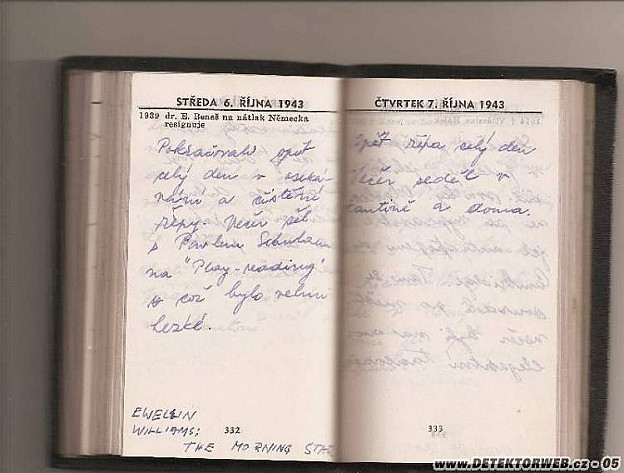 STŘEDA 6. ŘÍJNA 1943
1939 dr. E. Beneš na nátlak Německa
resignuje
Pokračovali opět
celý den v oseká-
vání a čištění
řepy. Večer šel
s Pavlem
na "Play-reading"
což bylo velmi
hezké.
EWELYIN
WILLIAMS:
THE MORNING STAR
332
ČTVRTEK 7. ŘÍJNA 1943
opět řepa celý den
večer seděl v
kantině a doma.
333
WWW.DETEKTORWEB.CZ - 05